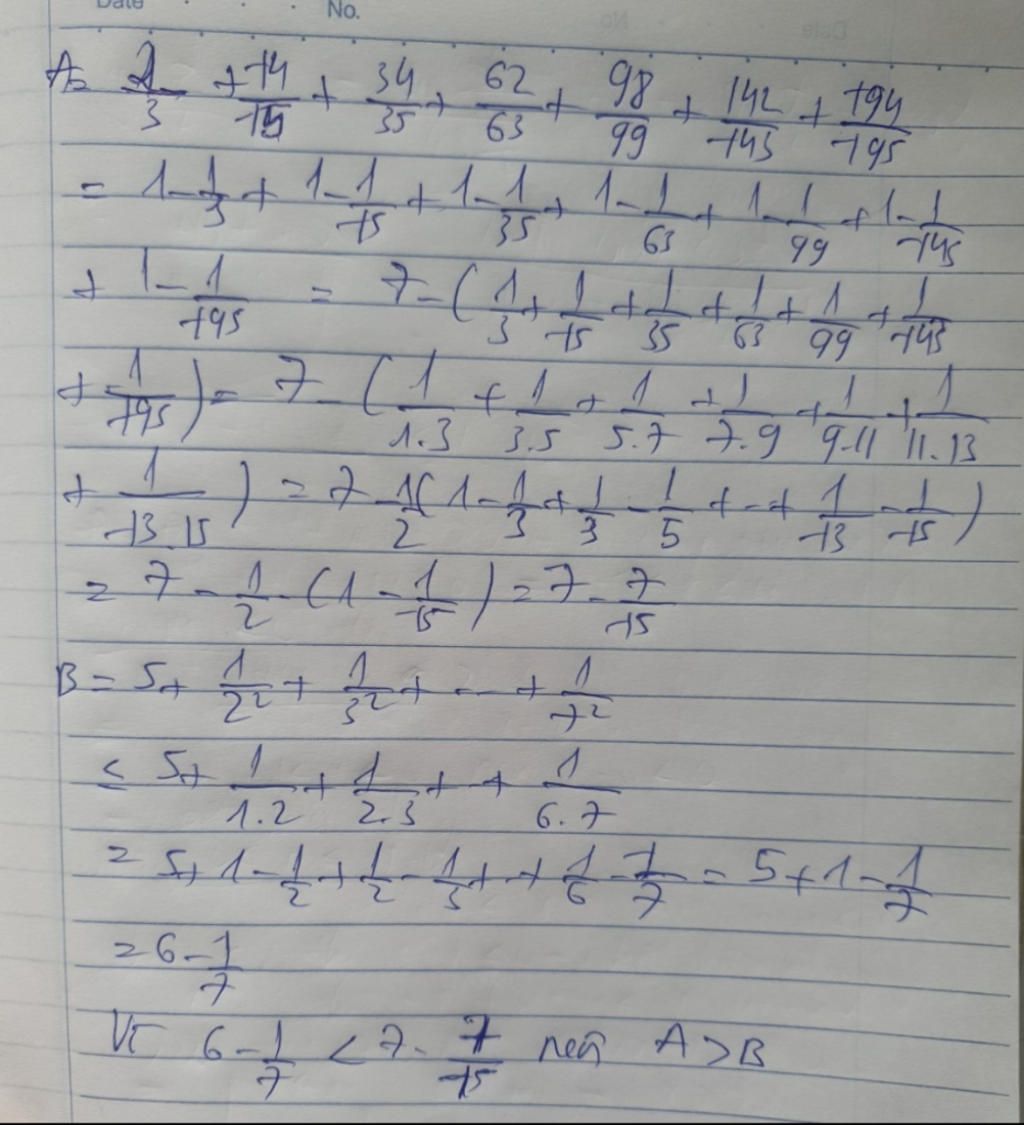 Date No.
A= 2/3 + 14/15 + 34/35 + 62/63 + 98/99 + 142/143 + 194/195
= 1-1/3 + 1-1/15 + 1-1/35 + 1-1/63 + 1-1/99 + 1-1/143
+ 1-1/195 = 7-(1/3 + 1/15 + 1/35 + 1/63 + 1/99 + 1/143
+ 1/195) = 7-(1/1.3 + 1/3.5 + 1/5.7 + 1/7.9 + 1/9.11 + 1/11.13
+ 1/13.15) = 7-1/2(1-1/3 + 1/3 - 1/5 + -- + 1/13 - 1/15)
= 7 - 1/2 . (1 - 1/15) = 7 - 7/15
B = 5+ 1/2² + 1/3² + --- + 1/7²
< 5+ 1/1.2 + 1/2.3 + -+ 1/6.7
= 5+ 1-1/2 + 1/2 - 1/3 + -+ 1/6 - 1/7 = 5+1-1/7
= 6-1/7
Vì 6-1/7 < 7-7/15 nên A > B